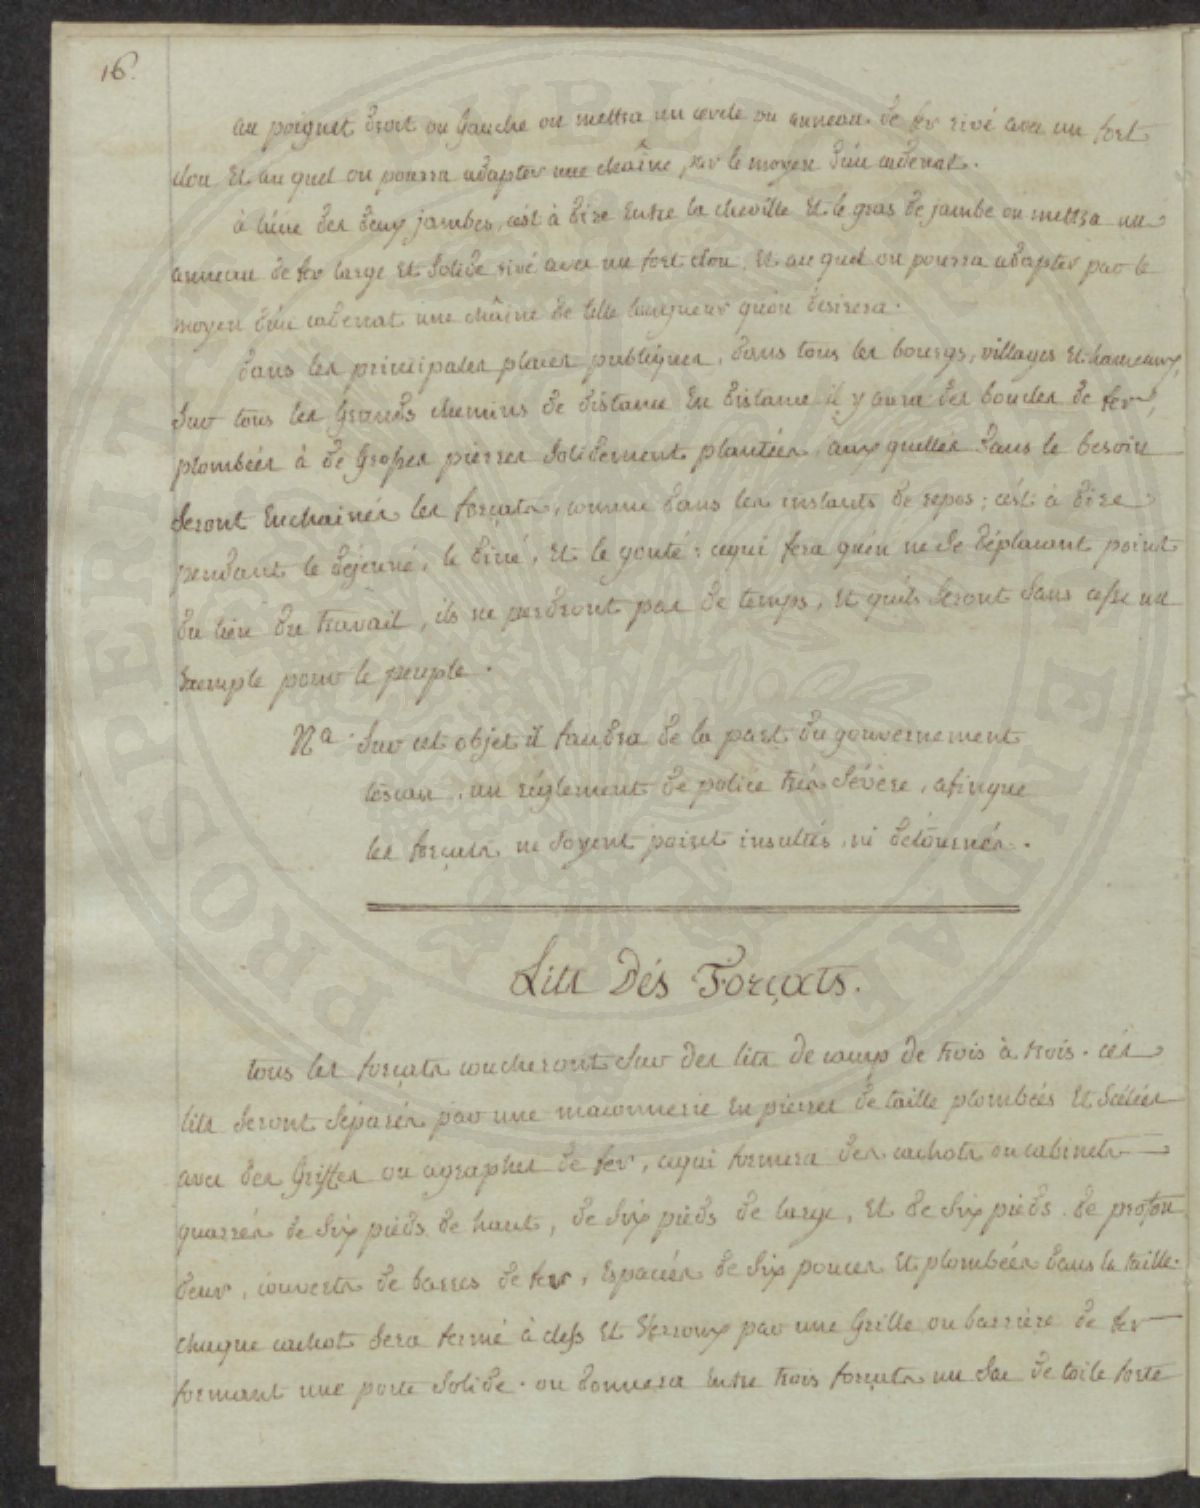 16.
au poignet droit ou Gauche on mettra un cercle ou anneau de fer rivé avec un fort
clou et au quel on pourra adapter une chaîne, par le moyen d'ún cadenat.
à l'úne des deux jambes, cést à dire Entre la cheville Et le gras de jambe on mettra un
anneau de fer large et Solide rivé avec un fort clou, Et au quel on pourra adapter par le
moyen d'ún cadenat une chaîne de telle longueur qu'on désirera.
dans les principales places publiques, dans tous les bourgs, villages Et hameaux,
Sur tous les Grands chemins de distance En distance il y aura des boucles de fer,
plombées à de Grosses pierres Solidement plantées, aux quelles dans le besoin
Seront Enchainés les forçats, comme dans les instants de repos; cést à dire
pendant le déjeuné, le diné, Et le gouté; cequi fera qu'én ne Se déplacant point
du lieu du travail, ils ne perdront pas de temps, Et qu'íls Seront Sans cesse un
Exemple pour le peuple.
Nª. Sur cet objet il faudra de la part du gouvernement
, un réglement de police très Sévère, afinque
les forçats ne Soyent point insultés, ni détournés.
Lits Dés Forçats.
tous les forçats coucheront Sur des lits de camp de trois à trois. cés
lits Seront Séparés par une maconnerie En pierres de taille plombées Et Scélées
avec des Griffes ou agraphes de fer, cequi formera des cachots ou cabinets
quarrés de Six pieds de haut, de Six pieds de large, Et de Six pieds de profon
deur, couverts de barres de fer, Espacées de Six pouces Et plombées dans la taille.
chaque cachot Sera fermé à clefs Et Verroux par une Grille ou barrière de fer
formant une porte Solide. on donnera Entre trois forçats un Sac de toile forte